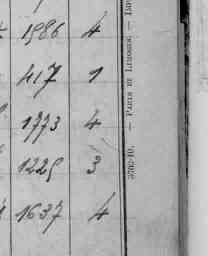 1986 4
417 1
1773 4
1225 3
1637 4
3762-10. — PARIS ET LIMOGES. — IMP